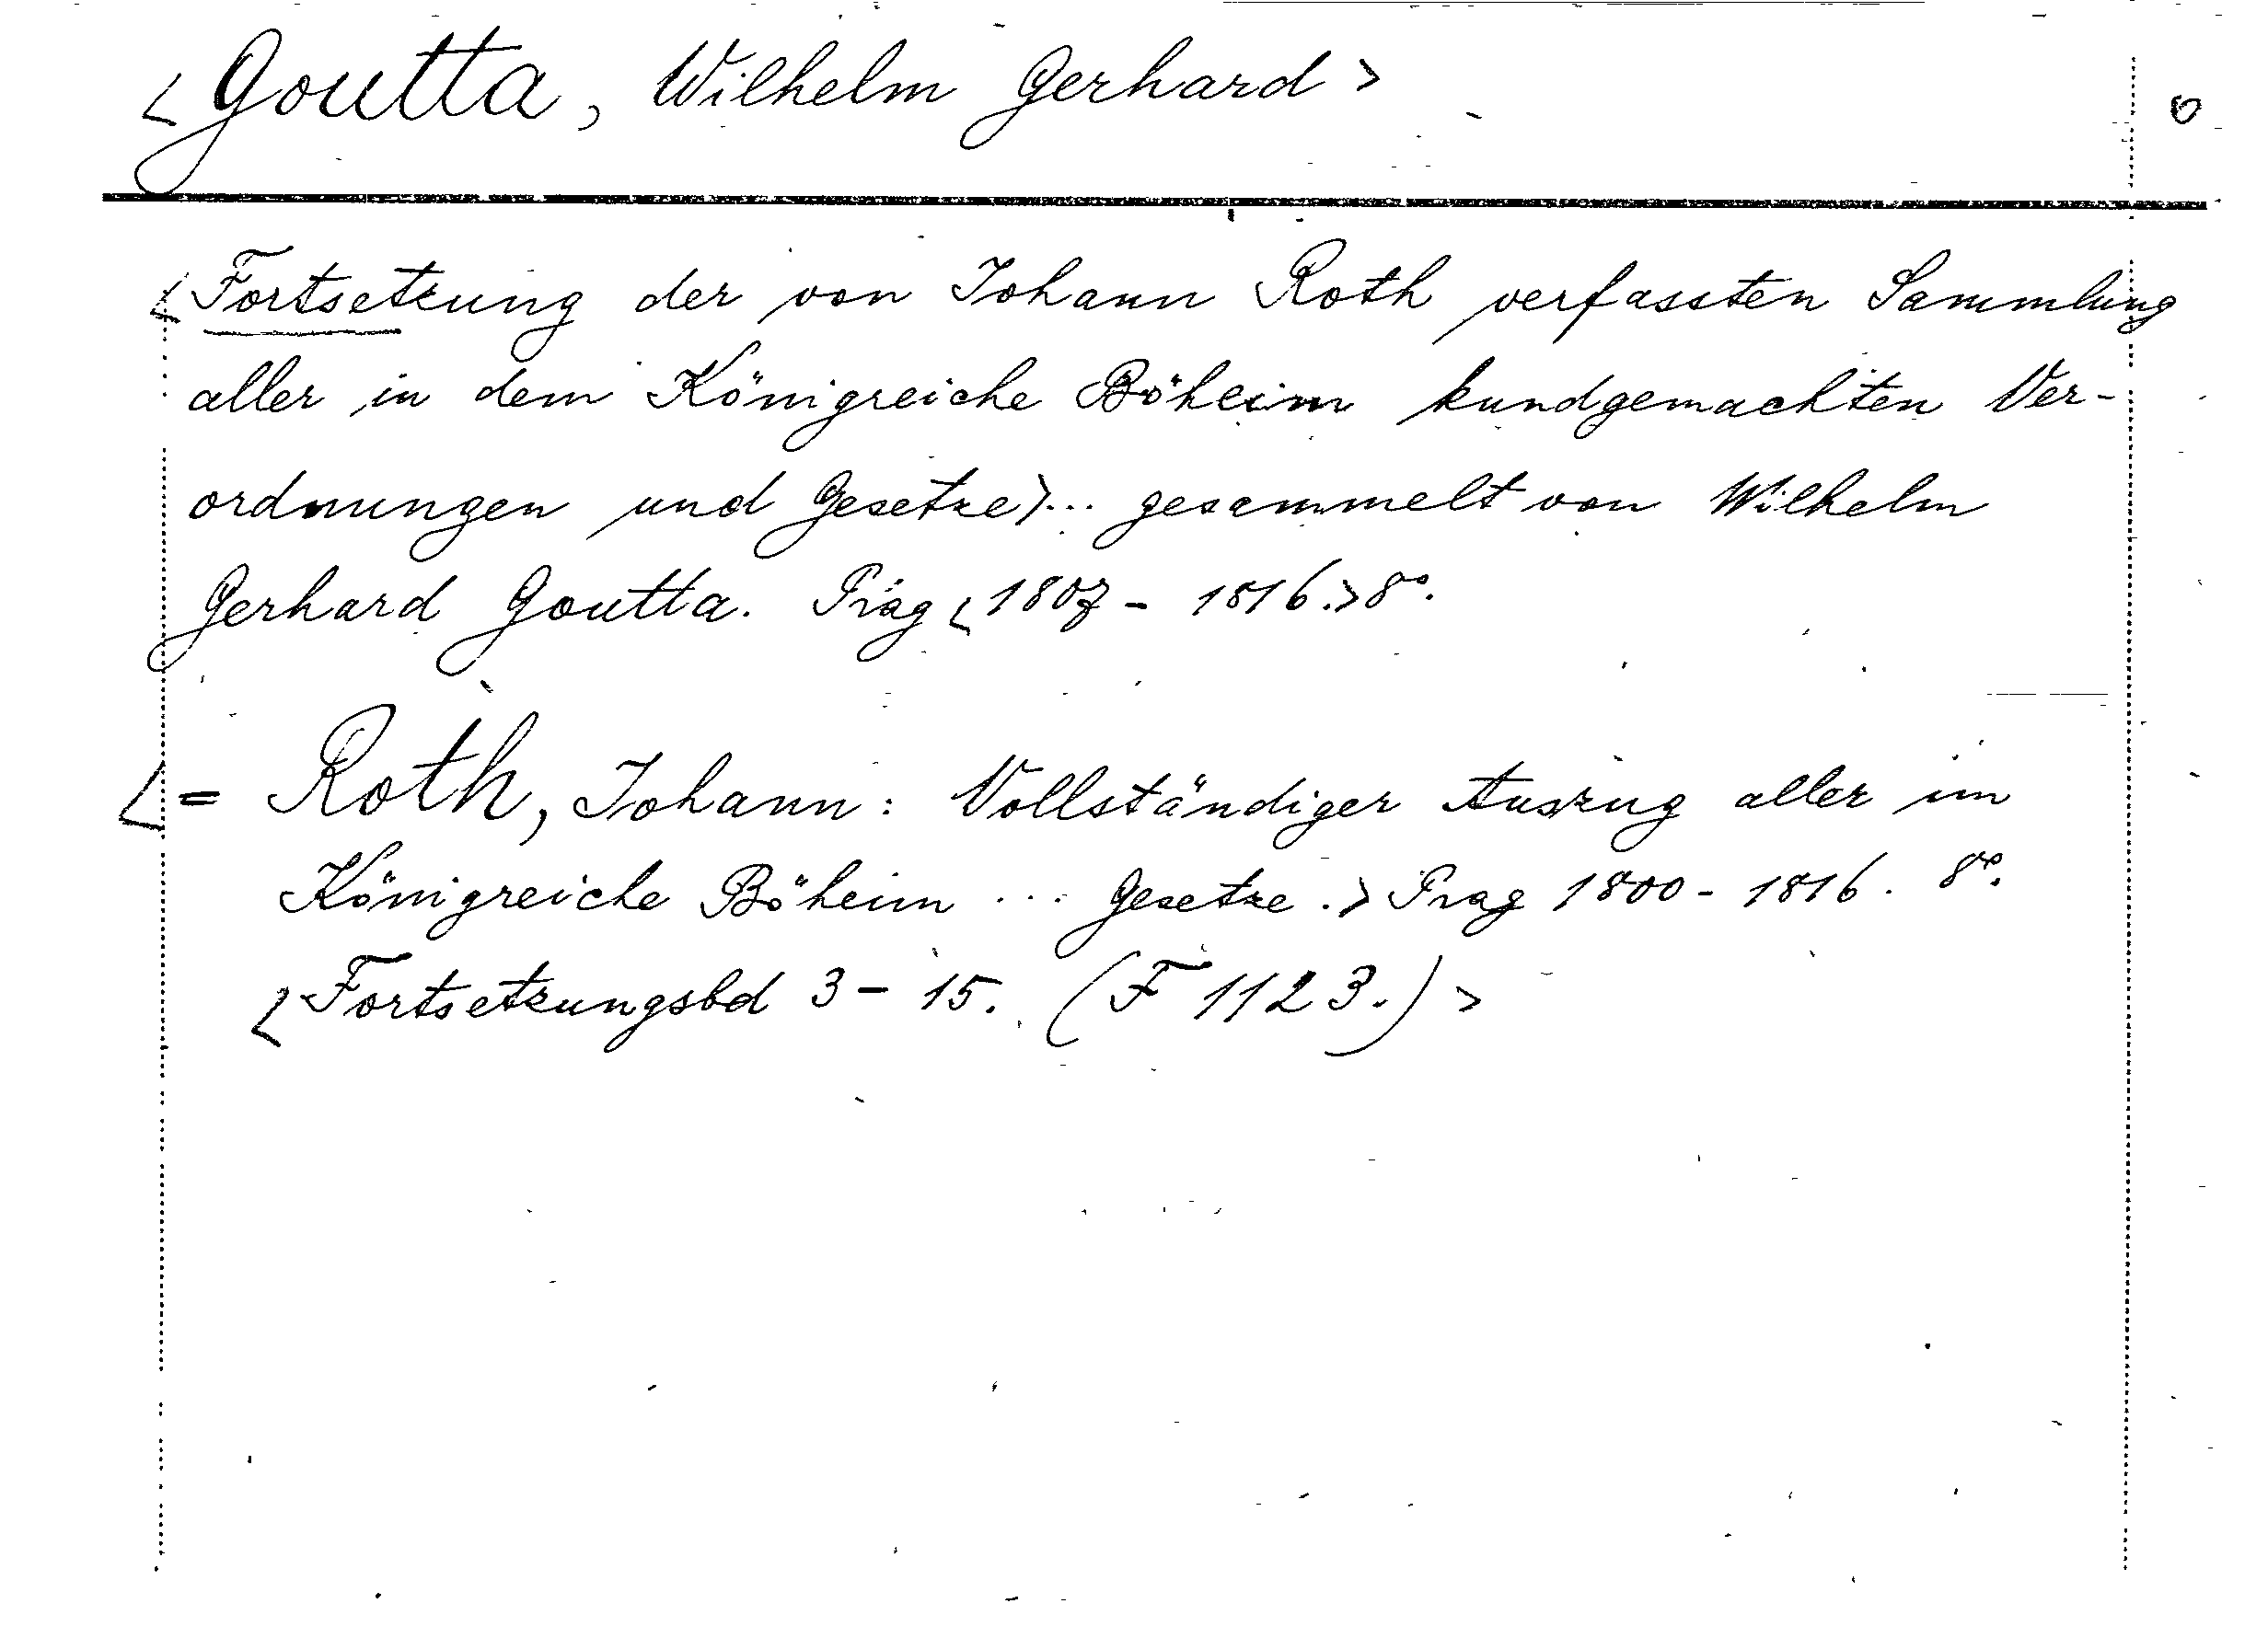 <Goutta, Wilhelm Gerhard> 0
<Fortsetzung der von Johann Roth verfassten Sammlung
aller in dem Königreiche Böheim kundgemachten Ver-
ordnungen und Gesetze>... gesammelt von Wilhelm
Gerhard Goutta. Prag <1807 - 1816.> 8°.
<= Roth, Johann: Vollständiger Auszug aller im
Königreiche Böheim ... Gesetze.> Prag 1800 - 1816. 8°.
<Fortsetzungsbd 3 - 15. (F 1123.)>